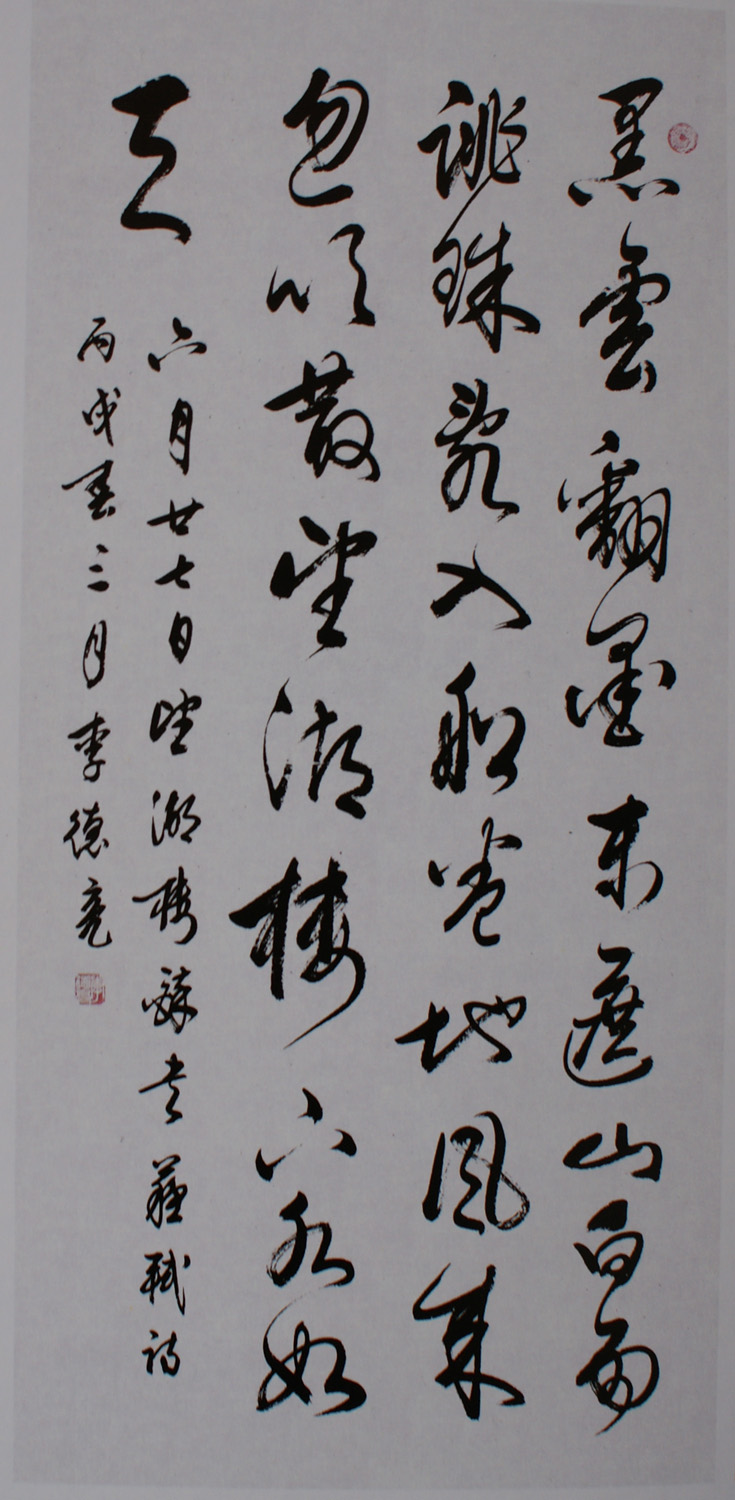 黑雲翻墨未遮山白雨
跳珠亂入船卷地風來
忽吹散望湖樓下水如
天
六月廿七日望湖樓醉書蘇軾詩
丙戌春三月李德亮